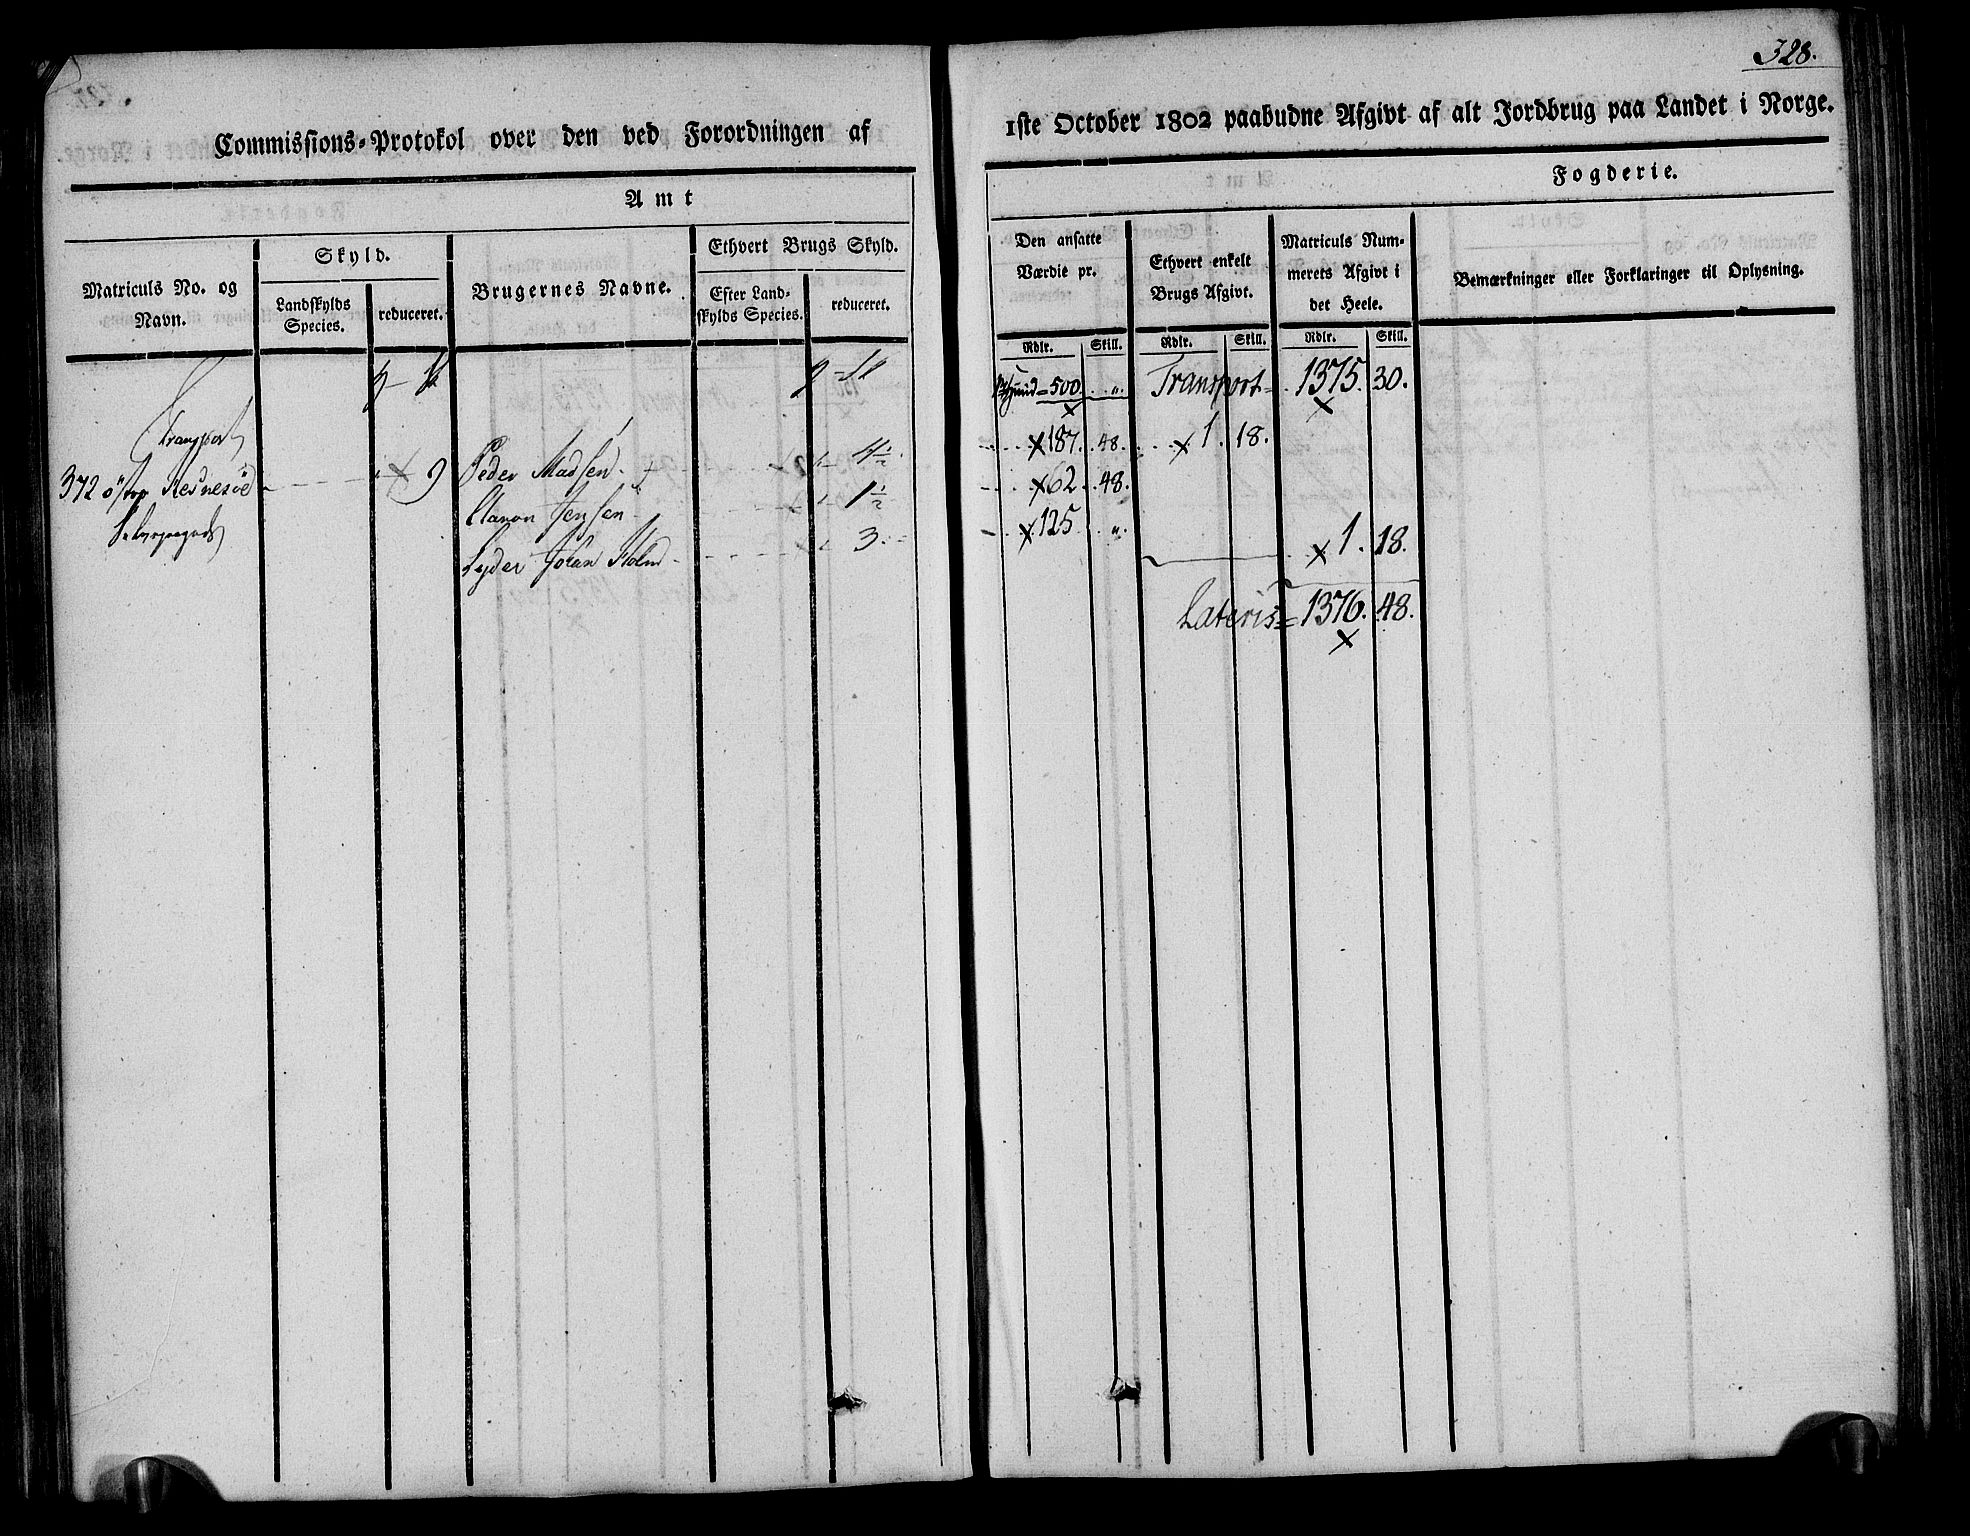 328.
Commissions-Protokol over den ved Forordningen af
1ste October 1802 paabudne Afgivt af alt Jordbrug paa Landet i Norge.
Amt
Fogderie.
Matriculs No. og
Navn.
Skyld.
Landskylds
Species.
reduceret.
Brugernes Navne.
Ethvert Brugs Skyld.
Efter Land-
skylds Species.
reduceret.
Den ansatte
Værdie pr.
Rdlr. Skill.
Ethvert enkelt
Brugs Afgivt.
Rdlr. Skill.
Matriculs Num-
merets Afgivt i
det Heele.
Rdlr. Skill.
Bemærkninger eller Forklaringer til Oplysning.
500 " Transport 1375. 30.
Transport
372 9 Peder Madsen 4½ 187. 48. 1. 18.
Jensen 1½ 62. 48.
Lyder Johan Holm 3. 125 " 1. 18.
Lateris 1376. 48.